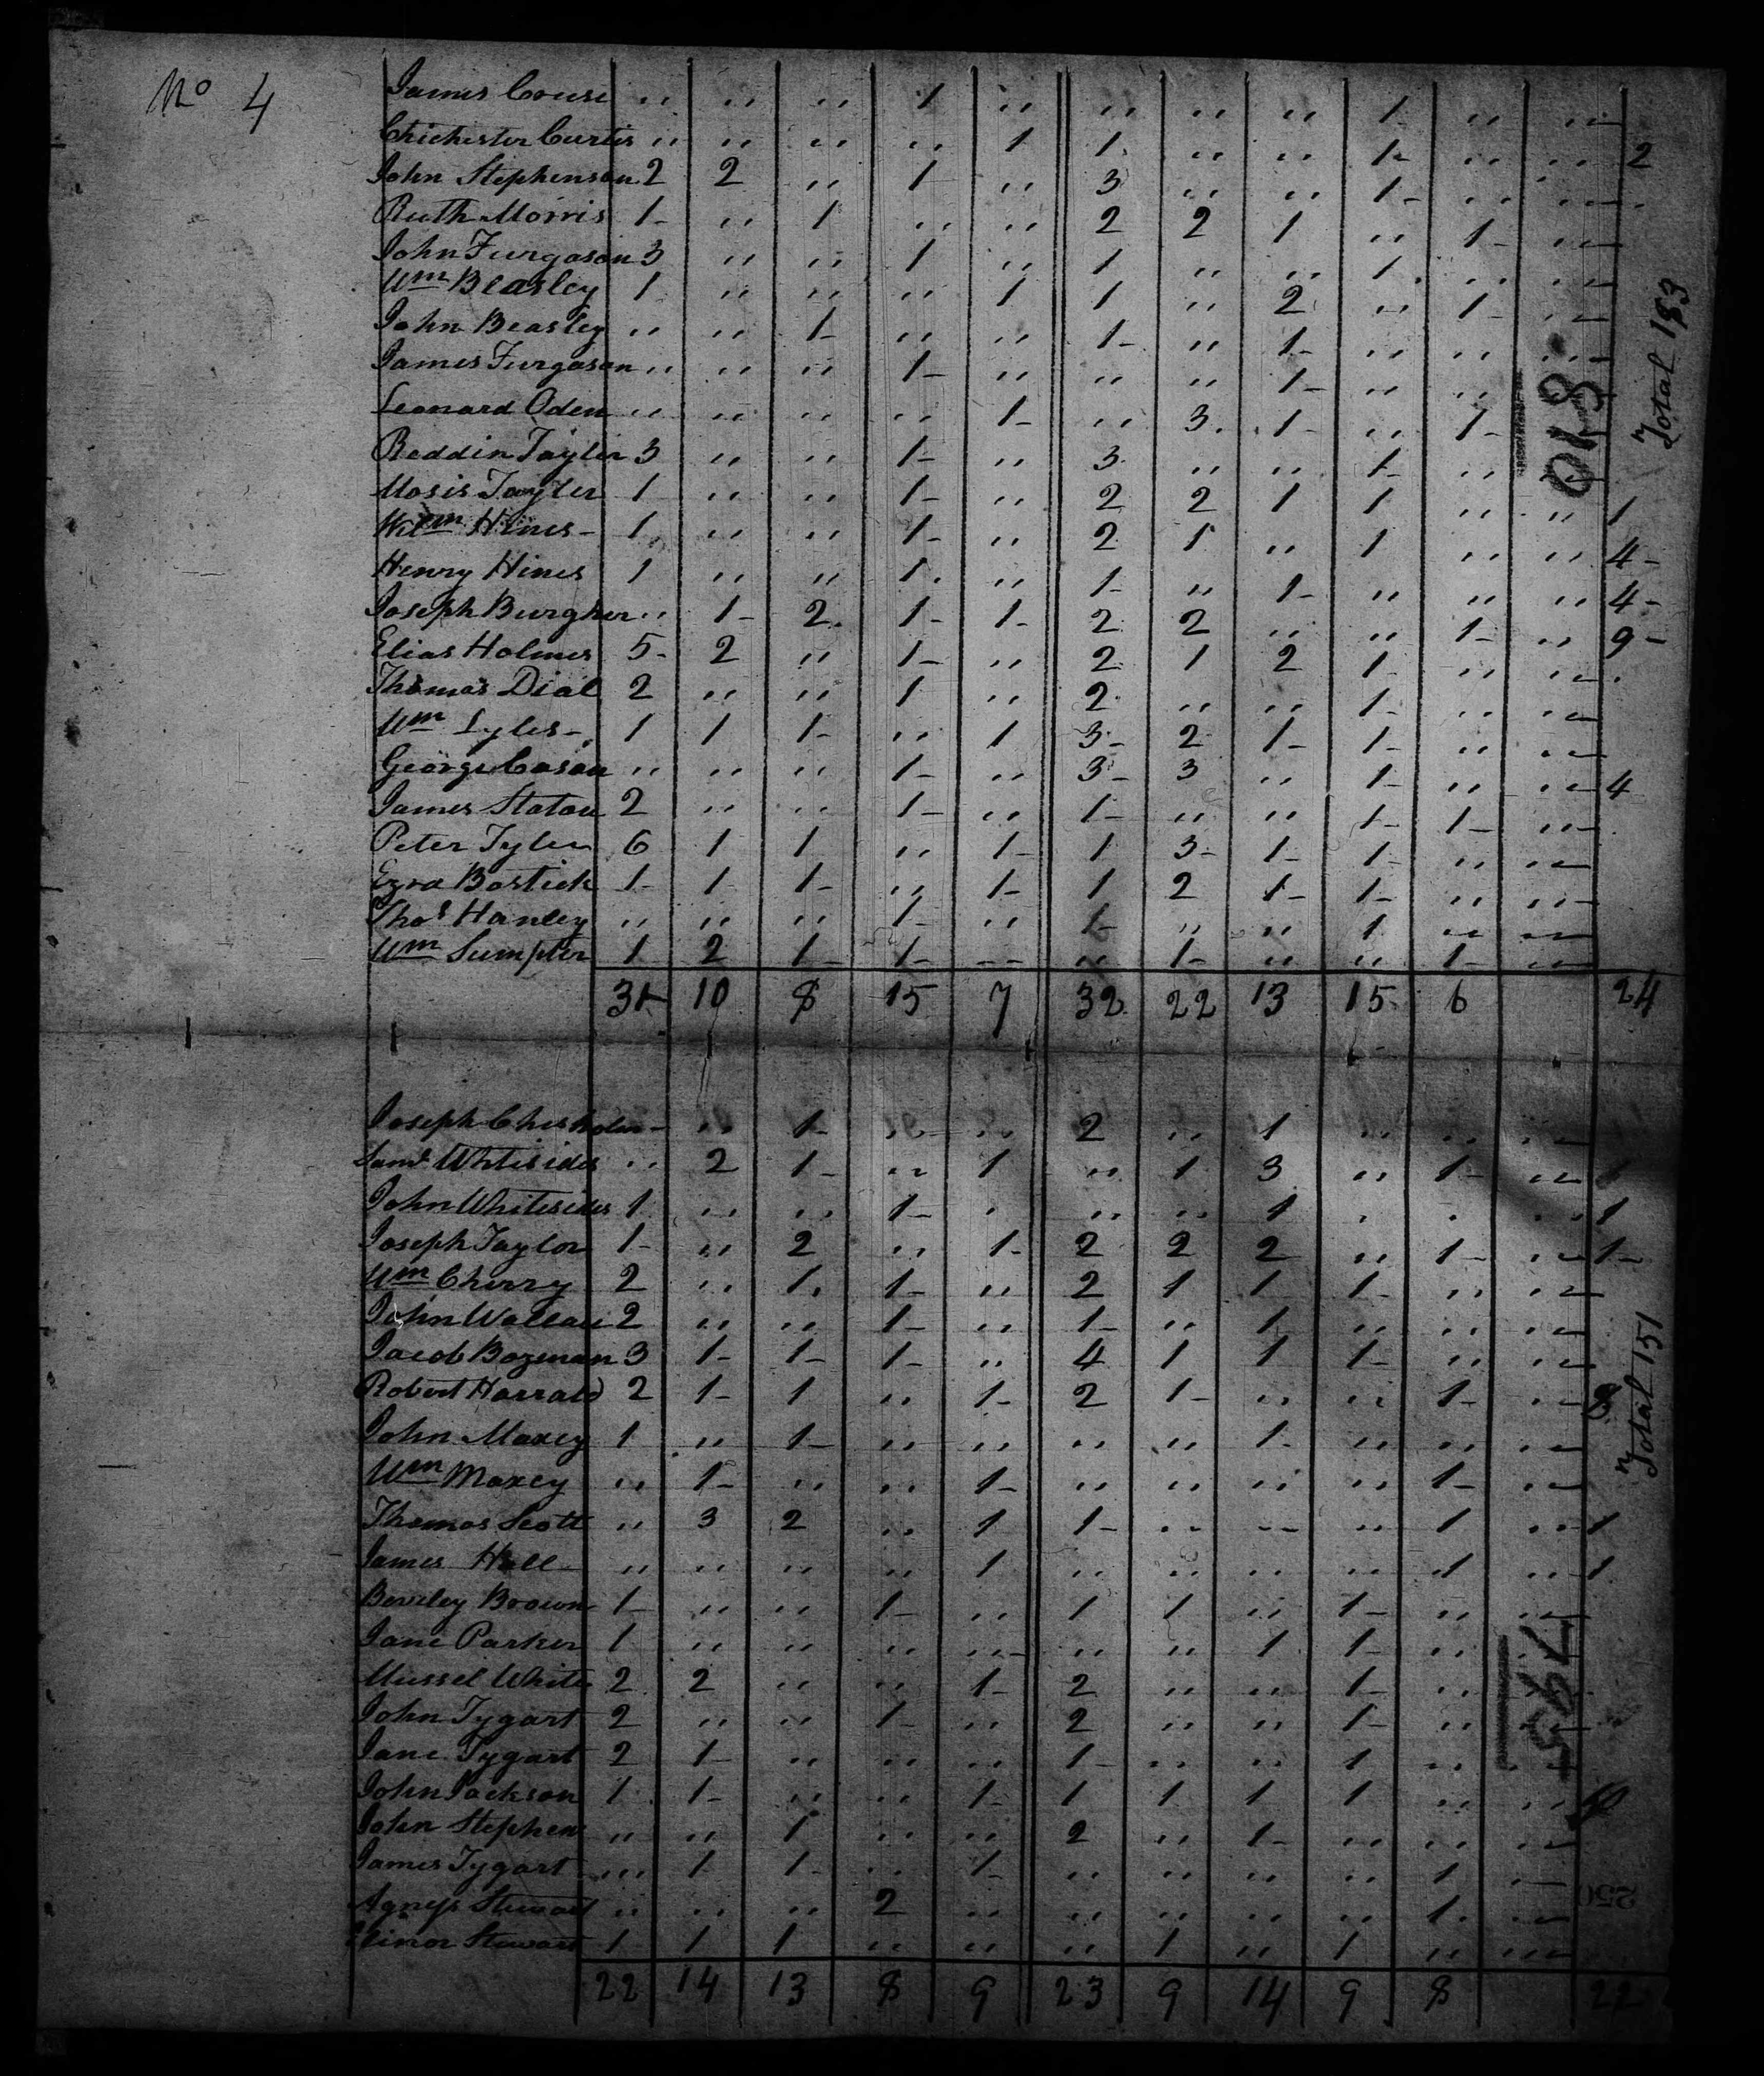 No 4
James Cruse " " " 1 " " " " 1 " "
Chichester Curtis " " " " 1 1 " " 1 " " 2
John Stephenson 2 2 " 1 " 3 " " 1 " "
Ruth Morris 1 " 1 " " 2 2 1 " 1 "
John Furgason 3 " " 1 " 1 " " 1 " "
Wm Beasley 1 " " " 1 1 " 2 " 1 "
John Beasley " " 1 " " 1 " 1 " " "
James Furgason " " " 1 " " " 1 " " "
Leonard Oden " " " " 1 " 3 1 " 1
Reddin Tayler 3 " " 1 " 3 " " 1 "
Mosis Tayler 1 " " 1 " 2 2 1 1 " " 1
Wilm Hines 1 " " 1 " 2 1 " 1 " " 4
Henry Hines 1 " " 1 " 1 " 1 " " " 4
Joseph Burgher " 1 2 1 1 2 2 " " 1 " 9
Elias Holmes 5 2 " 1 " 2 1 2 1 " "
Thomas Dial 2 " " 1 " 2 " " 1 " "
Wm Lyles 1 1 1 " 1 3 2 1 1 " "
George Cason " " " 1 " 3 3 " 1 " " 4
James Staton 2 " " 1 " 1 " " 1 1 "
Peter Tyler 6 1 1 " 1 1 3 1 1 " "
Ezra Bostick 1 1 1 " 1 1 2 1 1 " "
Thos Hanley " " " 1 " 1 " " 1 " "
Wm Sumpter 1 2 1 1 " " 1 " " 1 "
31 10 8 15 7 32 22 13 15 6 24
Total 183
810
Joseph Chisholm " " 1 " " 2 " 1 " " "
Saml Whitesides " 2 1 " 1 " 1 3 " 1 " 1
John Whitesides 1 " " 1 " " " 1 " " " 1
Joseph Taylor 1 " 2 " 1 2 2 2 " 1 " 1
Wm Cherry 2 " 1 1 " 2 1 1 1 " "
John Wallace 2 " " 1 " 1 " 1 " " "
Jacob Bozeman 3 1 1 1 " 4 1 1 1 " "
Robert Harrald 2 1 1 " 1 2 1 " " 1 "
John Maxey 1 " 1 " " " " 1 " " "
Wm Maxey " 1 " " 1 " " " " 1 "
Thomas Scott " 3 2 " 1 1 " " " 1 " 1
James Hall " " " " 1 " " " " 1 " 1
Beverley Brown 1 " " 1 " 1 1 " 1 " "
Jane Parker 1 " " " " " " 1 1 "
Mussel White 2 2 " " 1 2 " " 1 "
John Tygart 2 " " 1 " 2 " " 1 "
Jane Tygart 2 1 " " " 1 " " 1 "
John Jackson 1 1 " " 1 1 1 1 1 " "
John Stephens " " 1 " " 2 " 1 " " "
James Tygart " 1 1 " 1 " " " " 1 "
Agness Stewart " " " 2 " " " " " 1 "
Elinor Stewart 1 1 1 " " " 1 " 1 " "
22 14 13 8 9 23 9 14 9 8 22
Total 151
795
250